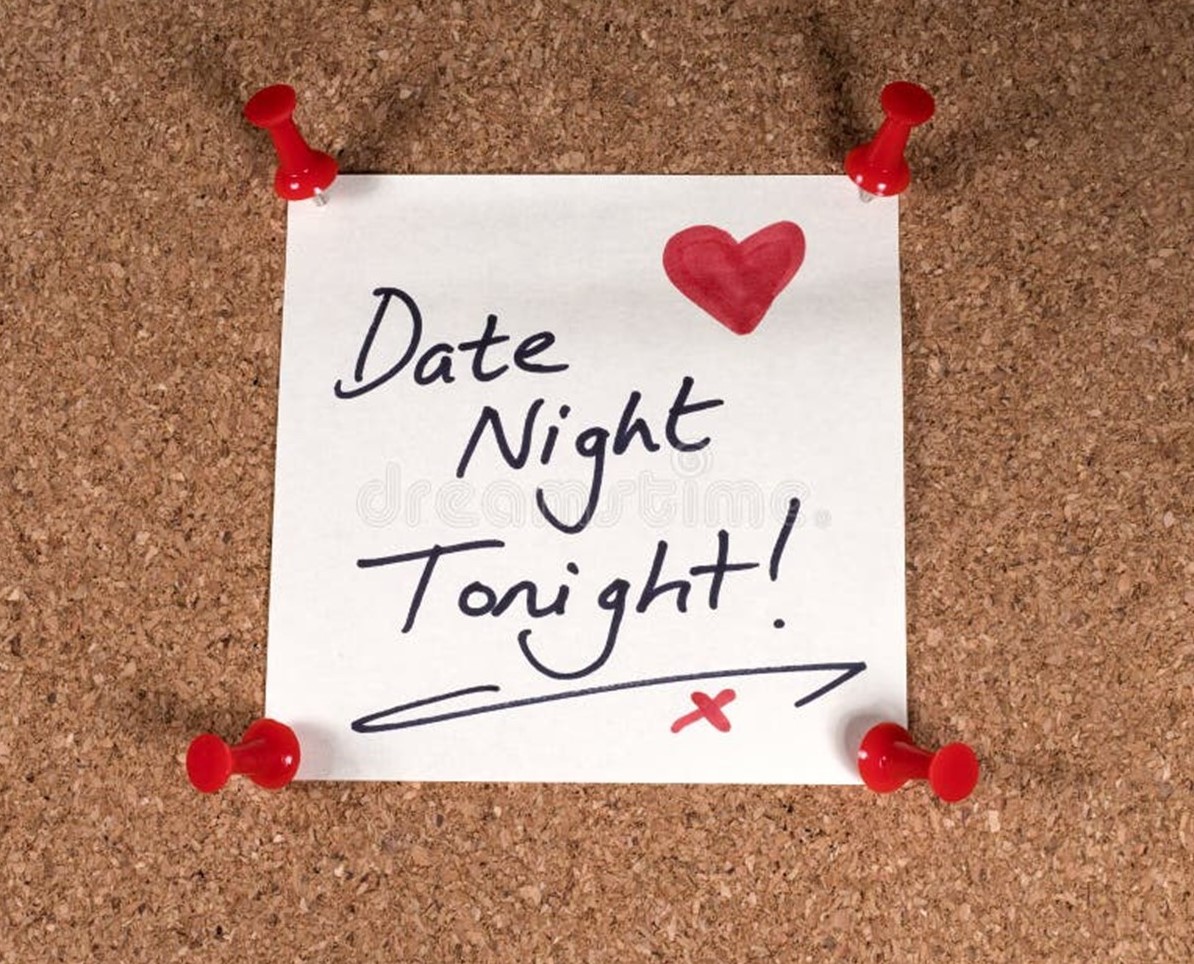 Date
Night
dreamstime.
Tonight!
x